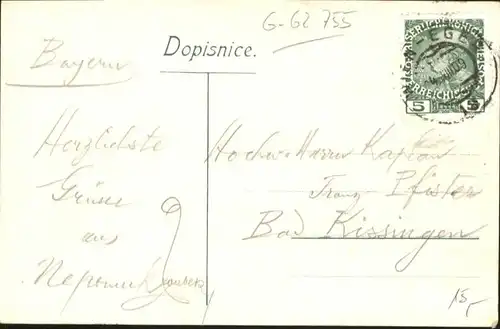 G-62 755
Dopisnice.
Bayern
Herzlichste
Grüsse
aus
Nepomuk
Hochw. Herrn Kaplan
Franz Pfister
Bad Kissingen
5 5
15,-